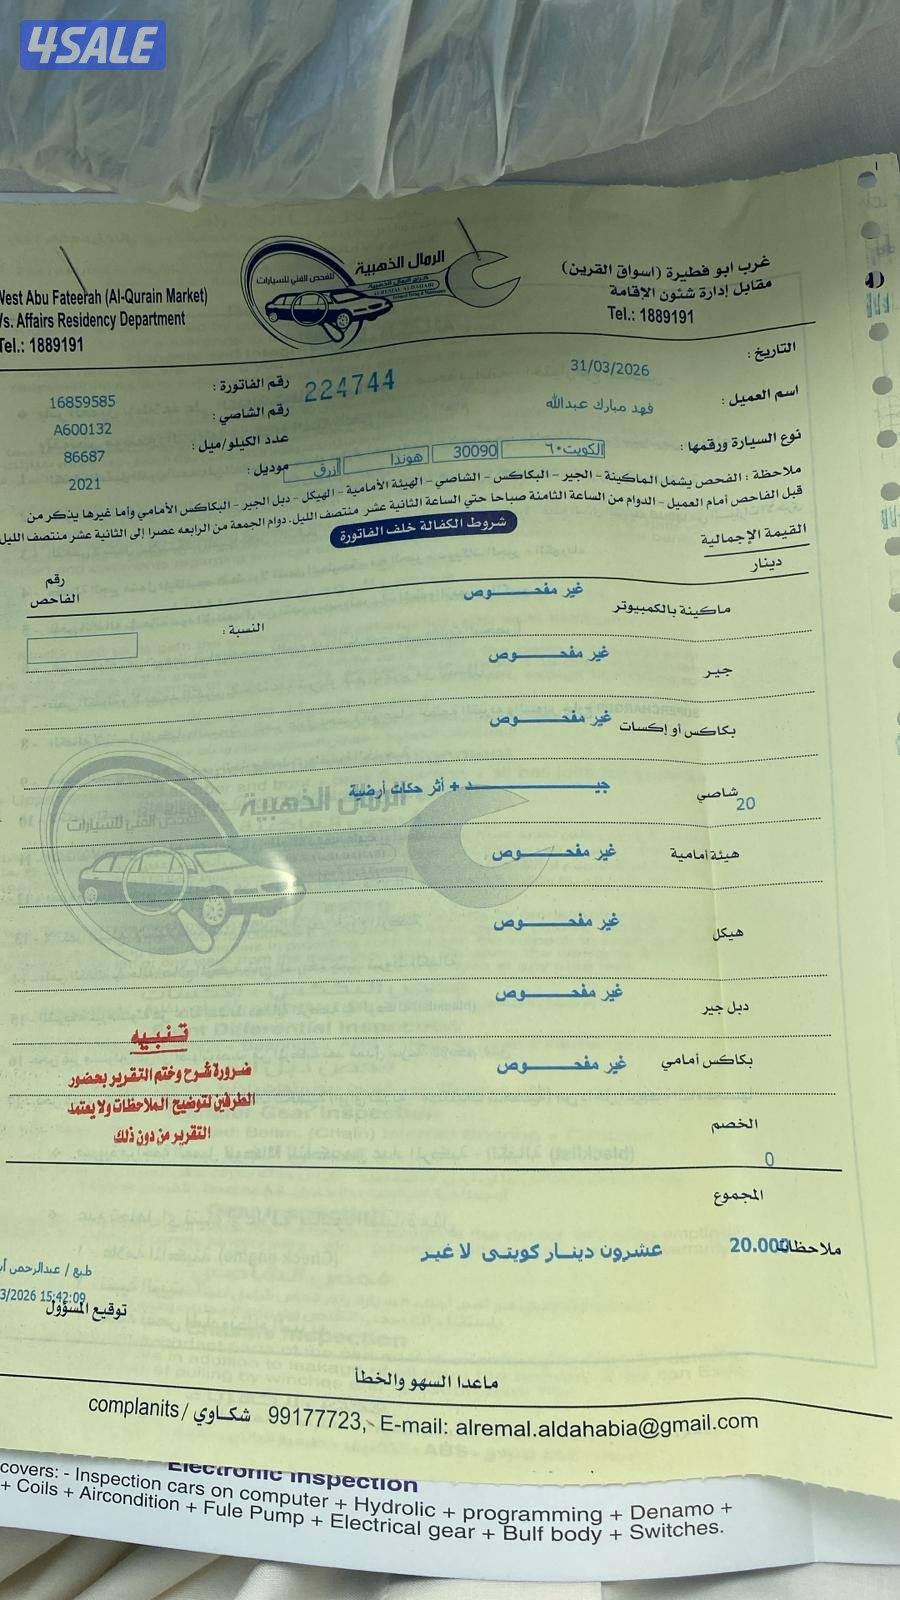 4SALE
غرب ابو فطيرة (اسواق القرين)
مقابل إدارة شئون الإقامة
Tel.: 1889191
الرمال الذهبية
للفحص الفني للسيارات
West Abu Fateerah (Al-Qurain Market)
Vs. Affairs Residency Department
Tel.: 1889191
التاريخ : 31/03/2026
رقم الفاتورة : 16859585
224744
اسم العميل : فهد مبارك عبدالله
رقم الشاصي : A600132
نوع السيارة ورقمها : الكويت٦٠ 30090 هوندا أزرق
عدد الكيلو/ميل : 86687
موديل : 2021
ملاحظة : الفحص يشمل الماكينة - الجير - البكاكس - الشاصي - الهيئة الأمامية - الهيكل - دبل الجير - البكاكس الأمامي وأما غيرها يذكر من
قبل الفاحص أمام العميل - الدوام من الساعة الثامنة صباحا حتي الساعة الثانية عشر منتصف الليل. دوام الجمعة من الرابعه عصرا إلى الثانية عشر منتصف الليل
شروط الكفالة خلف الفاتورة
القيمة الإجمالية
دينار
رقم
الفاحص
ماكينة بالكمبيوتر غير مفحـــوص
النسبة :
جير غير مفحـــوص
بكاكس أو إكسات غير مفحـــوص
شاصي 20 جيـــد + أثر حكات أرضية
الرمال الذهبية
للفحص الفني للسيارات
هيئة امامية غير مفحـــوص
هيكل غير مفحـــوص
دبل جير غير مفحـــوص
بكاكس أمامي غير مفحـــوص
تنبيه
ضرورة شرح وختم التقرير بحضور
الطرفين لتوضيح الملاحظات ولا يعتمد
التقرير من دون ذلك
الخصم 0
المجموع
ملاحظات 20.000 عشرون دينـار كويتي لا غير
طبع / عبدالرحمن
3/2026 15:42:09
توقيع المسؤول
ماعدا السهو والخطأ
complanits / شكاوي 99177723, E-mail: alremal.aldahabia@gmail.com
Electronic Inspection
covers: - Inspection cars on computer + Hydrolic + programming + Denamo +
+ Coils + Aircondition + Fule Pump + Electrical gear + Bulf body + Switches.